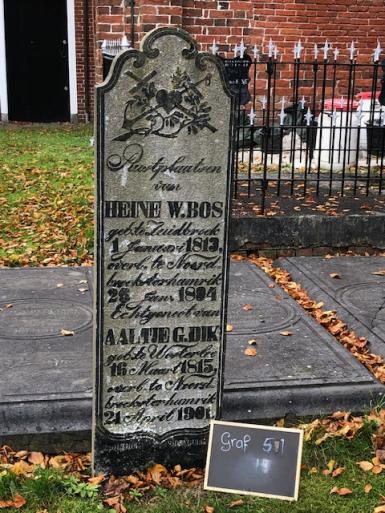 Rustplaatsen
van
HEINE W. BOS
geb. te Zuidbroek
1 Januari 1813,
overl. te Noord
broeksterhamrik
26 Jan. 1894
Echtgenoot van
AALTJE G. DIK
geb. te Westerlee
16 Maart 1815,
overl. te Noord
broeksterhamrik
21 April 1901.
Graf 501